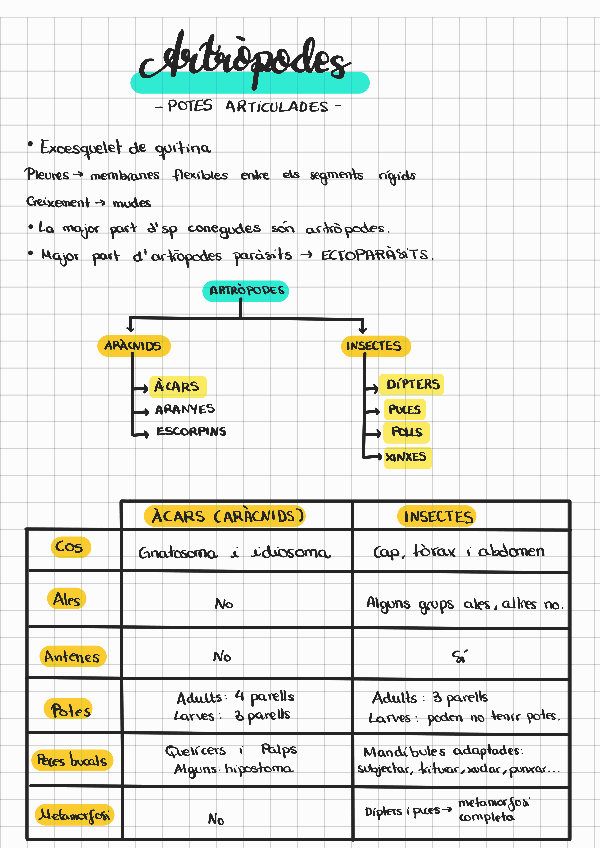 Artròpodes
- POTES ARTICULADES -
• Exoesquelet de quitina
Pleures → membranes flexibles entre els segments rígids
Creixement → mudes
• La major part d'sp conegudes són artròpodes.
• Major part d'artròpodes paràsits → ECTOPARÀSITS.
ARTRÒPODES
ARÀCNIDS
INSECTES
ÀCARS
ARANYES
ESCORPINS
DÍPTERS
PUCES
POLLS
XINXES
ÀCARS (ARÀCNIDS)
INSECTES
Cos
Gnatosoma i idiosoma
Cap, tòrax i abdomen
Ales
No
Alguns grups ales, altres no.
Antenes
No
Sí
Potes
Adults: 4 parells
Larves: 3 parells
Adults: 3 parells
Larves: poden no tenir potes.
Peces bucals
Quelícers i Palps
Alguns: hipostoma
Mandíbules adaptades:
subjectar, triturar, xuclar, punxar...
Metamorfosi
No
Dípters i puces → metamorfosi
completa